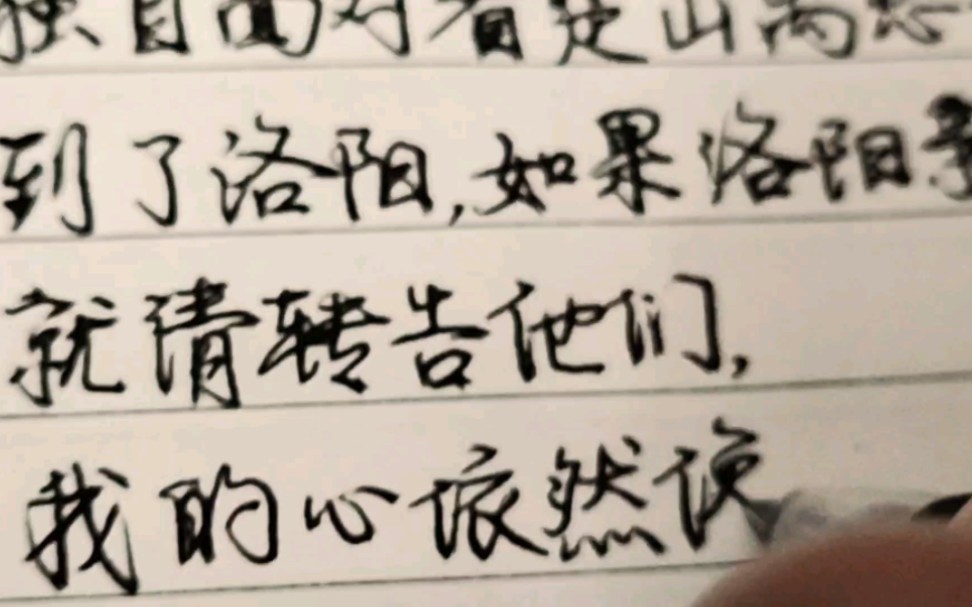 独自面对着楚山
到了洛阳,如果洛阳亲
就请转告他们,
我的心依然